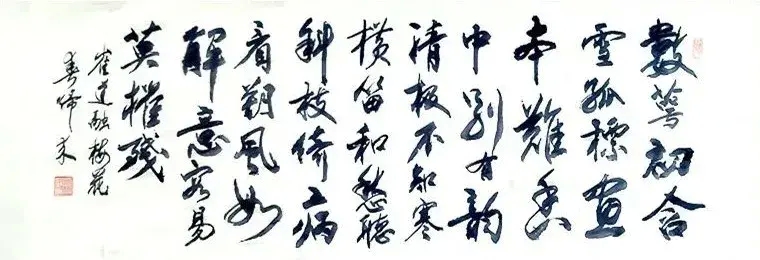 數萼初含
雪孤標畫
本難香
中別有韵
清极不知寒
横笛和愁聽
斜枝倚病
看朔風如
解意容易
莫摧殘
崔道融梅花